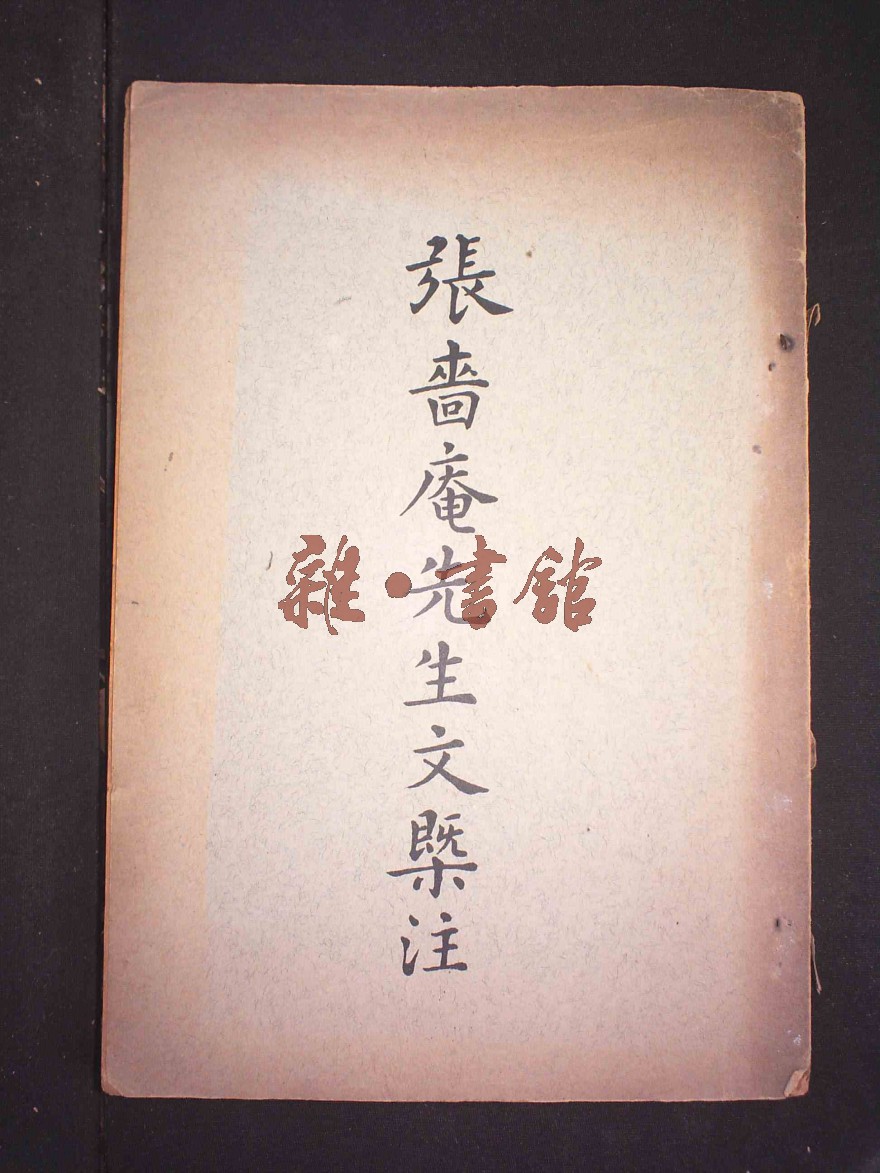 張嗇庵先生文槩注
雜·書館